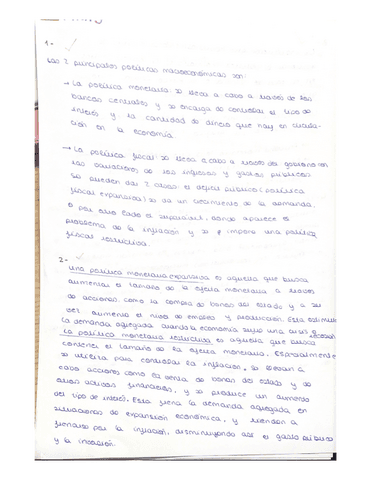 1-
Las 2 principales políticas macroeconómicas son:
→ La política monetaria: se lleva a cabo a través de los
bancos centrales y se encarga de controlar el tipo de
interés y la cantidad de dinero que hay en circula-
ción en la economía.
→ La política fiscal: se lleva a cabo a través del gobierno con
las variaciones de los ingresos y gastos públicos
Se pueden dar 2 casos: el déficit público (política
fiscal expansiva) se da un crecimiento de la demanda,
o por otro lado el superávit, donde aparece el
problema de la inflación y se impone una política
fiscal restrictiva.
2-
Una política monetaria expansiva es aquella que busca
aumentar el tamaño de la oferta monetaria a través
de acciones como la compra de bonos del estado y a su
vez aumenta el nivel de empleo y producción. Esta estimula
la demanda agregada cuando la economía sufre una crisis o recesión
La política monetaria restrictiva es aquella que busca
contener el tamaño de la oferta monetaria. Especialmente
se utiliza para controlar la inflación, se llevan a
cabo acciones como la venta de bonos del estado y de
otros activos financieros, y se produce un aumento
del tipo de interés. Esta frena la demanda agregada en
situaciones de expansión económica, y tienden a
frenarse por la inflación, disminuyendo así el gasto público
y la inversión.